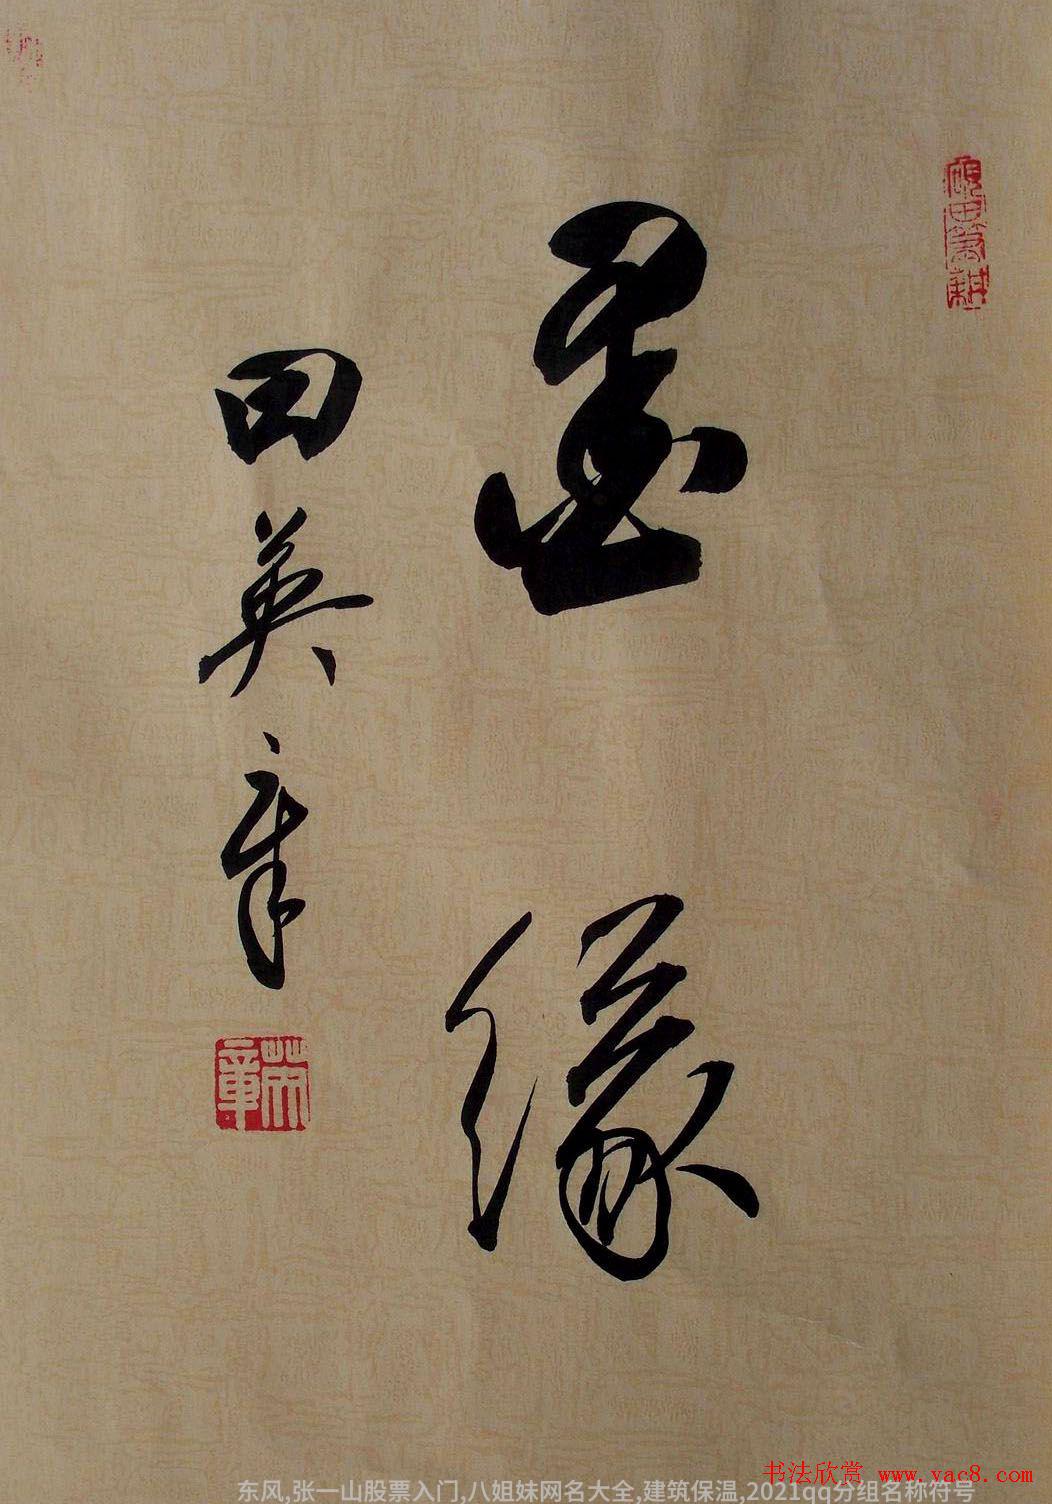 硯田筆耕
墨緣
田英章
英章
书法欣赏 www.yac8.com
东风,张一山股票入门,八姐妹网名大全,建筑保温,2021qq分组名称符号